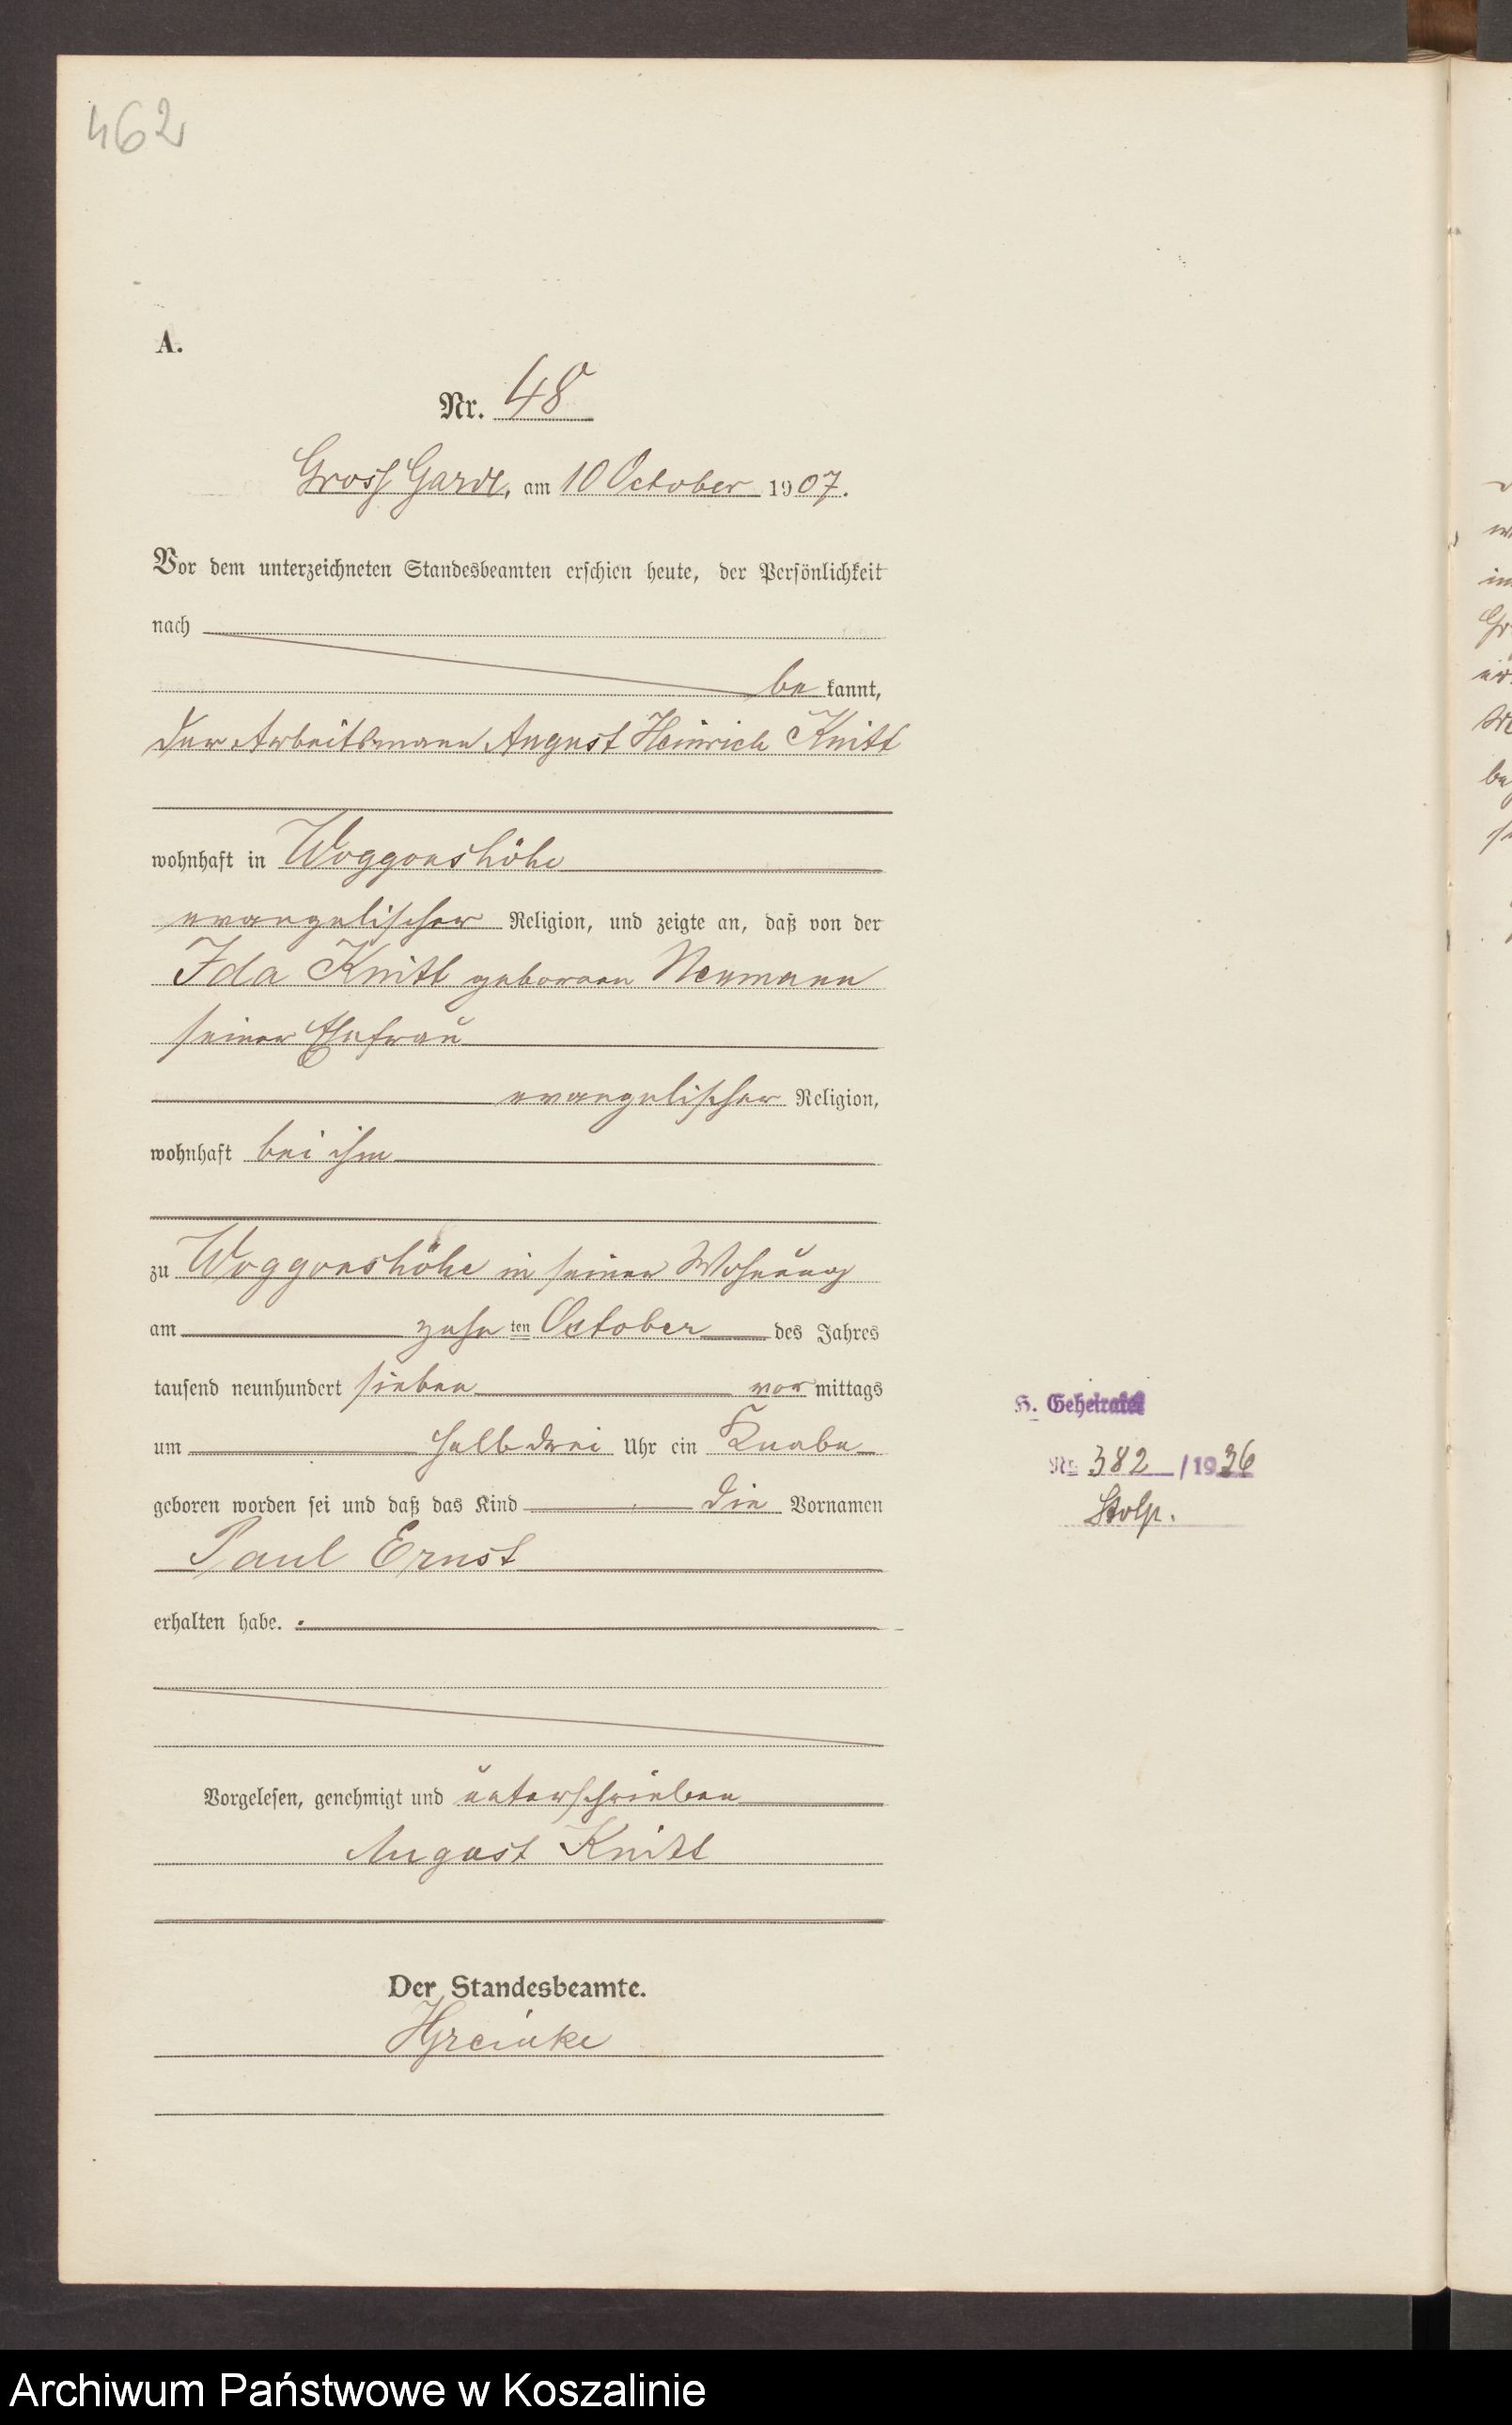 462
A.
Nr. 48
Gross Garde, am 10 October 1907.
Vor dem unterzeichneten Standesbeamten erschien heute, der Persönlichkeit
nach
be kannt,
der Arbeitsmann August Heinrich Knitt
wohnhaft in Woggonshöhe
evangelischer Religion, und zeigte an, daß von der
Ida Knitt geboren Neumann
seiner Ehefrau
evangelischer Religion,
wohnhaft bei ihm
zu Woggonshöhe in seiner Wohnung
am zehn ten October des Jahres
tausend neunhundert sieben vor mittags
um halb drei Uhr ein Knabe
geboren worden sei und daß das Kind die Vornamen
Paul Ernst
erhalten habe.
Vorgelesen, genehmigt und unterschrieben
August Knitt
Der Standesbeamte.
H. Geheiratet
Nr 382 / 1936
Stolp.
Archiwum Państwowe w Koszalinie